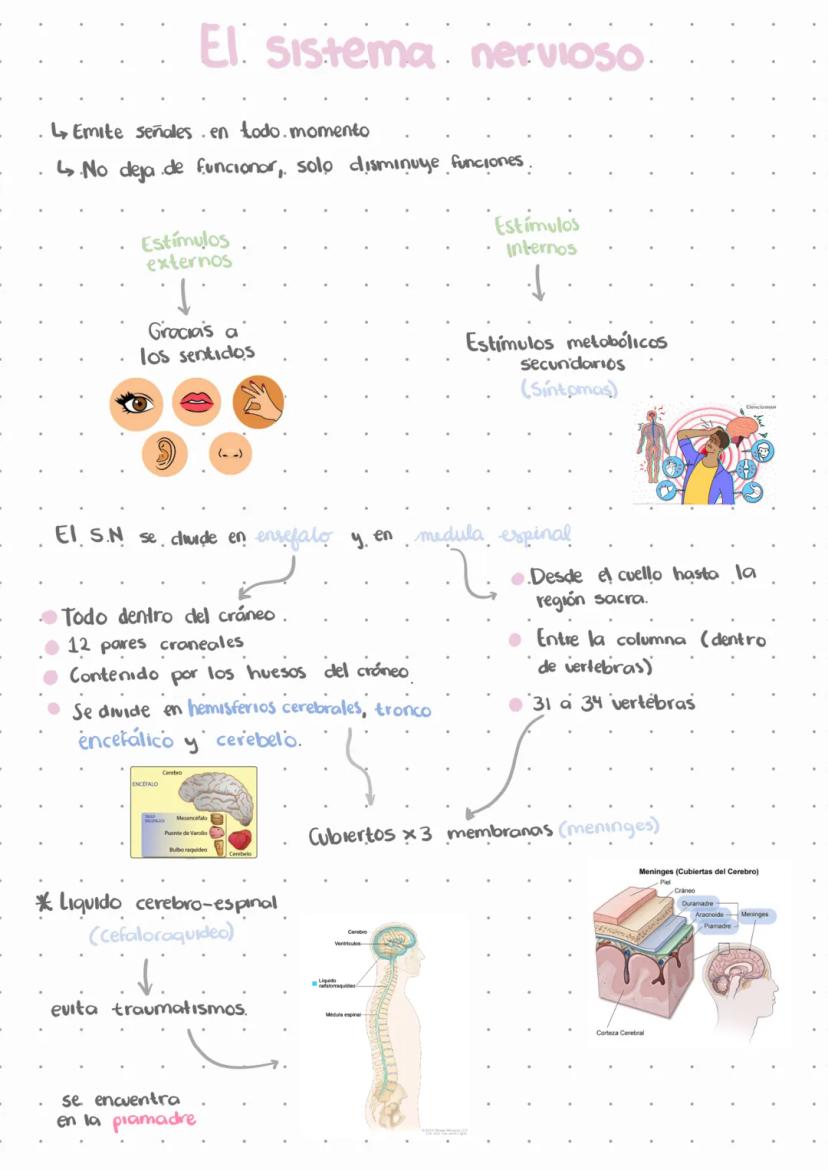 El sistema nervioso
↳ Emite señales en todo momento
↳ No deja de funcionar, solo disminuye funciones.
Estímulos
externos
Gracias a
los sentidos
Estímulos
Internos
Estímulos metabólicos
secundarios
(Síntomas)
El S.N se divide en ensefalo y en medula espinal
Todo dentro del cráneo
12 pares craneales
Contenido por los huesos del cráneo
Se divide en hemisferios cerebrales, tronco
encefálico y cerebelo.
Desde el cuello hasta la
región sacra.
Entre la columna (dentro
de vertebras)
31 a 34 vertébras
Cerebro
ENCÉFALO
Mesencéfalo
Puente de Varolio
Bulbo raquídeo
Cerebelo
Cubiertos x3 membranas (meninges)
* Liquido cerebro-espinal
(cefaloraquideo)
evita traumatismos.
se encuentra
en la piamadre
Cerebro
Ventrículos
Líquido
cefalorraquídeo
Médula espinal
Meninges (Cubiertas del Cerebro)
Piel
Cráneo
Duramadre
Aracnoide
Piamadre
Meninges
Corteza Cerebral